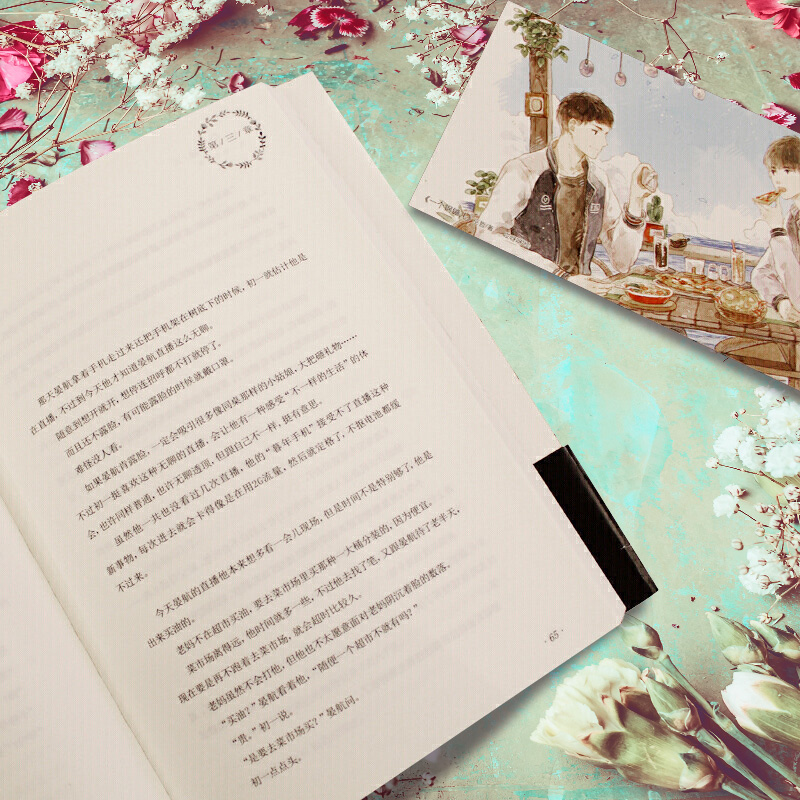 第/三/章
那天晏航拿着手机走过来还把手机架在树底下的时候，初一就估计他是
在直播，不过到今天他才知道晏航直播这么无聊。
随意到想开就开，想停连招呼都不打就停了。
而且还不露脸，有可能露脸的时候就戴口罩。
难怪没人看。
如果晏航肯露脸，一定会吸引很多像同桌那样的小姑娘，大把砸礼物……
不过初一挺喜欢这种无聊的直播，会让他有一种感受“不一样的生活”的体
会，也许同样普通，也许无聊透顶，但跟自己不一样，挺有意思。
虽然他一共也没看过几次直播，他的“老年手机”接受不了直播这种
新事物，每次进去就会卡得像是在用2G流量，然后就定格了，不抠电池都缓
不过来。
今天晏航的直播他本来想多看一会儿现场，但是时间不是特别够了，他是
出来买油的。
老妈不在超市买油，要去菜市场里买那种一大桶分装的，因为便宜。
菜市场离得远，他时间就多一些，不过他去找了笔，又跟晏航待了老半天，
现在要是再不跑着去菜市场，就会超时比较久。
老妈虽然不会打他，但他也不太愿意面对老妈阴沉着脸的数落。
“买油？”晏航看着他，“随便一个超市不就有吗？”
“贵。”初一说。
“是要去菜市场买？”晏航问。
初一点点头。
·65·